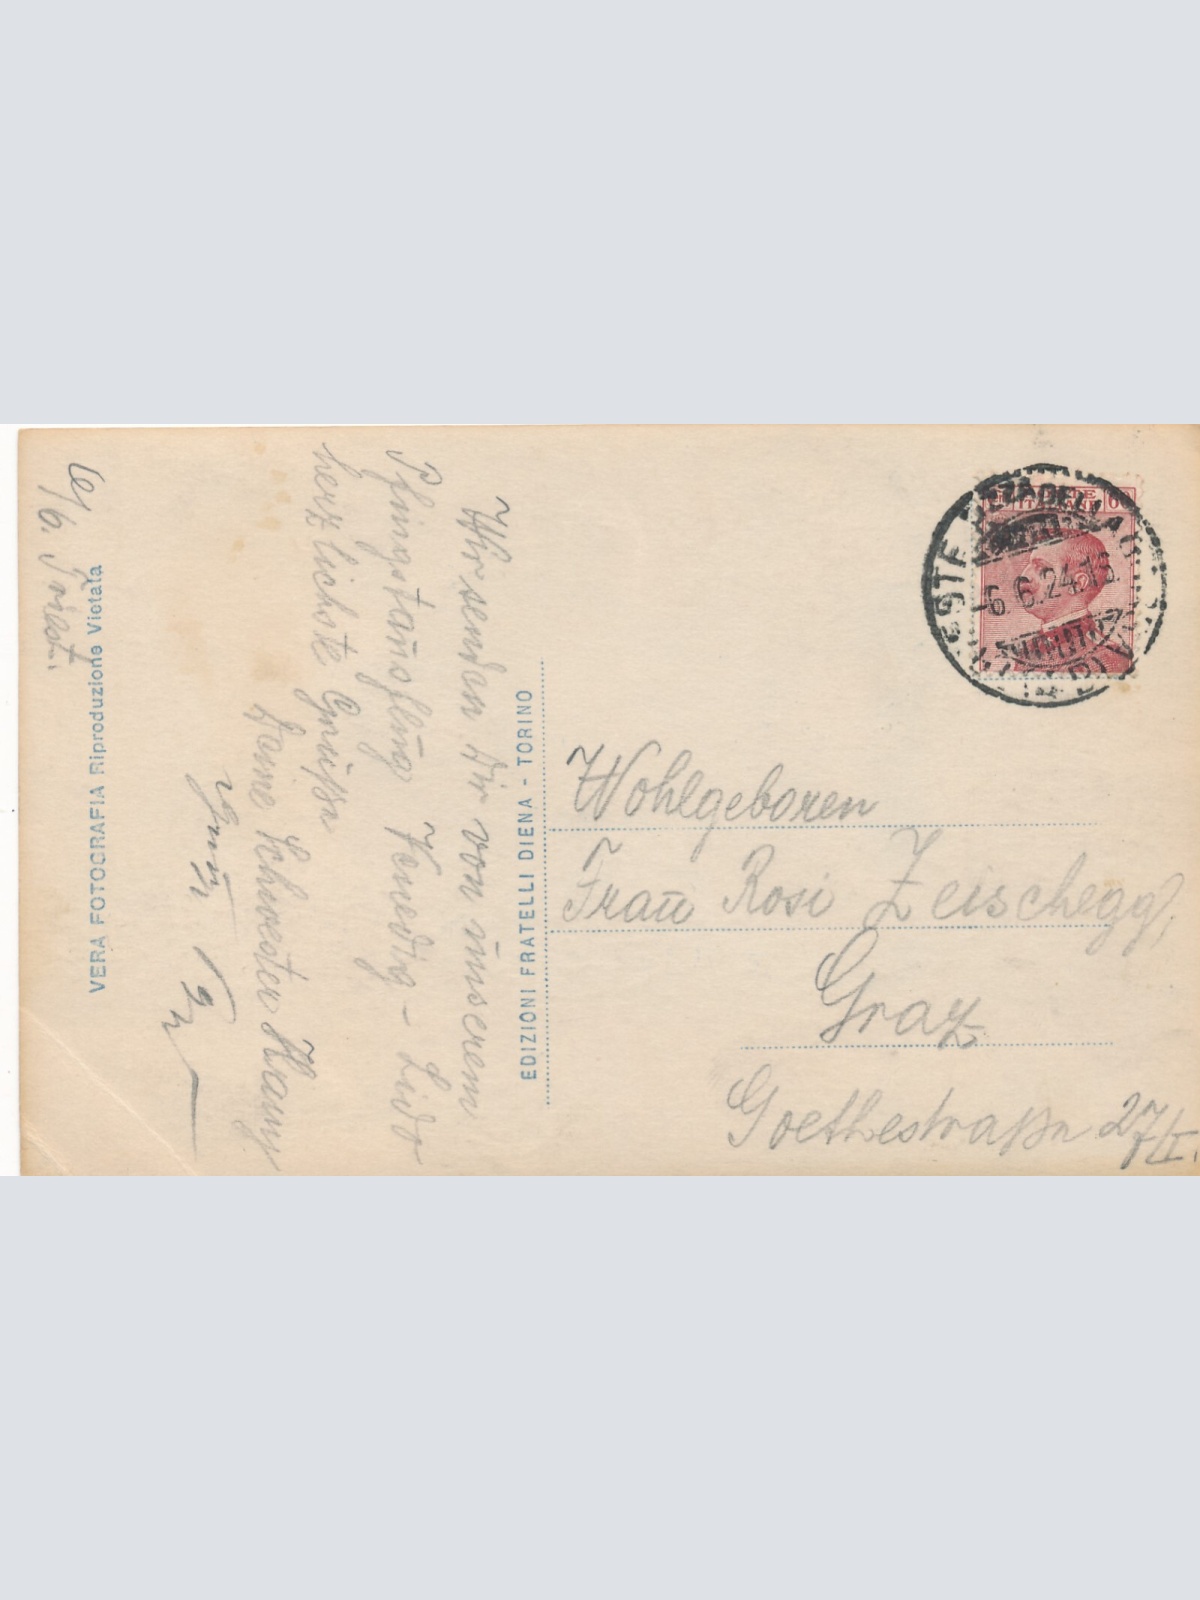 6/6. Triest.
Wir senden Dir von unserem
Pfingstausflug Venedig - Lido
herzlichste Grüße
Deine Schwester Hanny
VERA FOTOGRAFIA Riproduzione Vietata
EDIZIONI FRATELLI DIENA - TORINO
60
-6.6.24.1
Wohlgeboren
Frau Rosi Zeischegg,
Graz
Goethestraße 27/II.